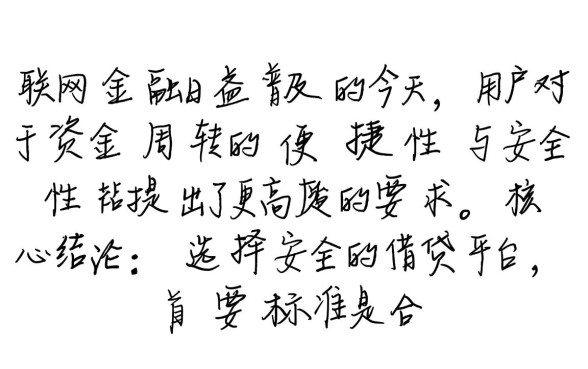 联网金融日益普及的今天，用户对
于资金周转的便捷性与安全
性都提出了更高的要求。核
心结论：选择安全的借贷平台，
首要标准是合